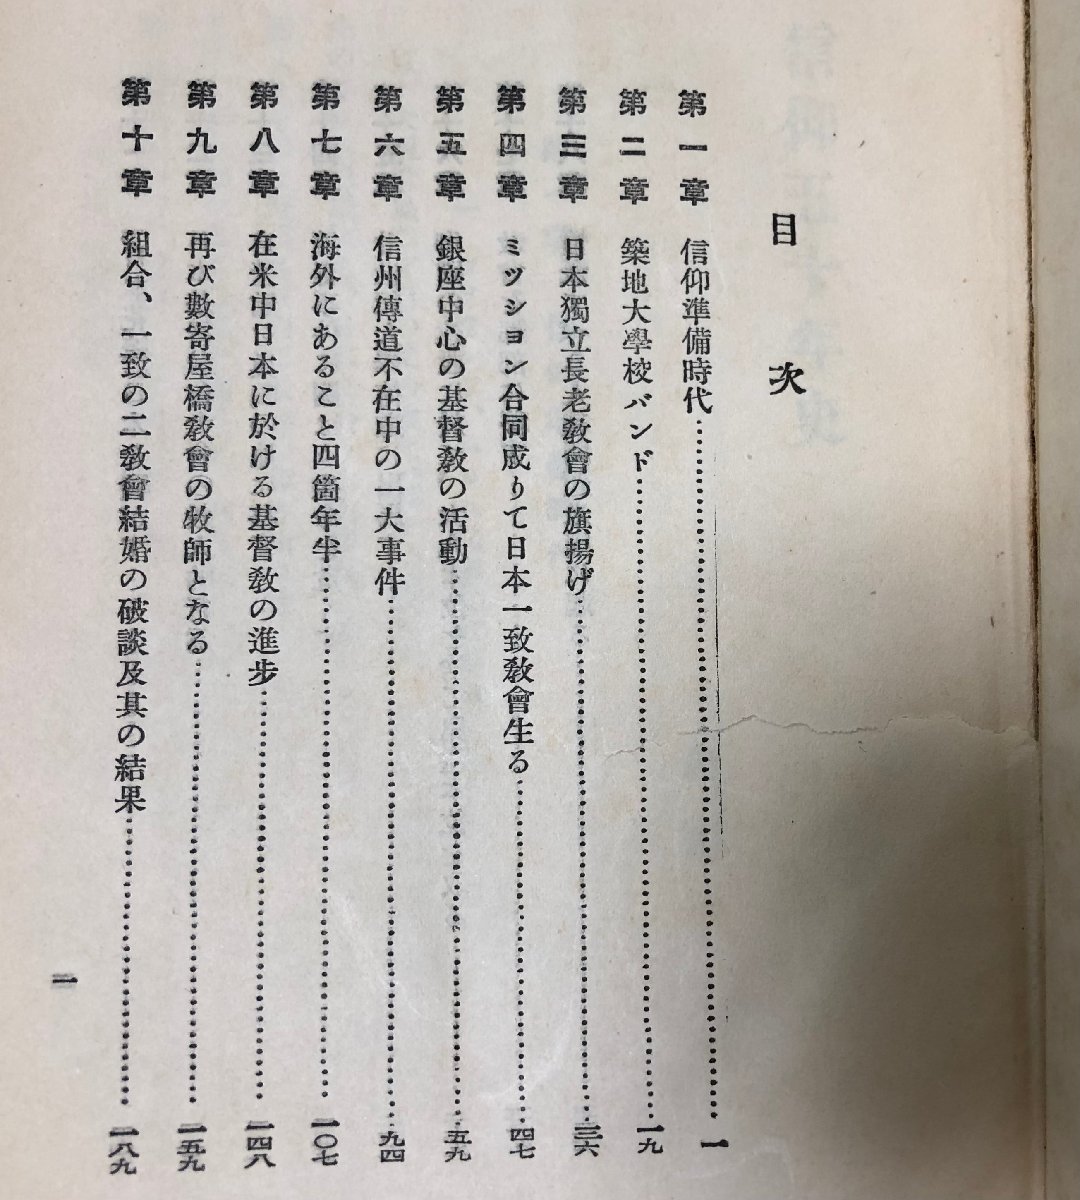 目次
第一章 信仰準備時代………一
第二章 築地大學校バンド………一九
第三章 日本獨立長老敎會の旗揚げ………三六
第四章 ミツシヨン合同成りて日本一致敎會生る………四七
第五章 銀座中心の基督敎の活動………五九
第六章 信州傳道不在中の一大事件………九四
第七章 海外にあること四箇年半………一〇七
第八章 在米中日本に於ける基督敎の進步………一四八
第九章 再び數寄屋橋敎會の牧師となる………一五九
第十章 組合、一致の二敎會結婚の破談及其の結果………一八九
一